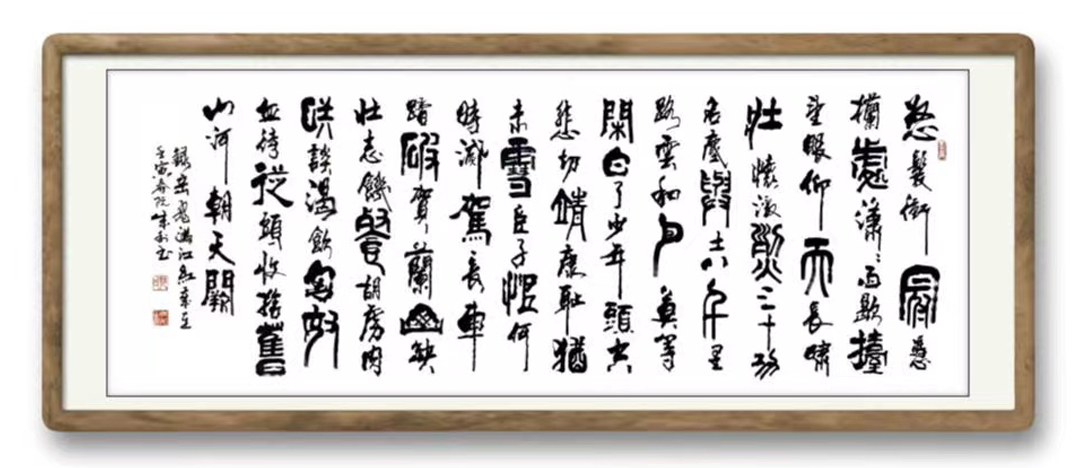 怒髮衝冠憑
欄處瀟瀟雨歇擡
望眼仰天長嘯
壯懷激烈三十功
名塵與土八千里
路雲和月莫等
閑白了少年頭空
悲切靖康耻猶
未雪臣子恨何
時滅駕長車
踏破賀蘭山缺
壯志饑餐胡虜肉
笑談渴飲匈奴
血待從頭收拾舊
山河朝天闕
錄岳飛滿江紅
壬寅春阮成書